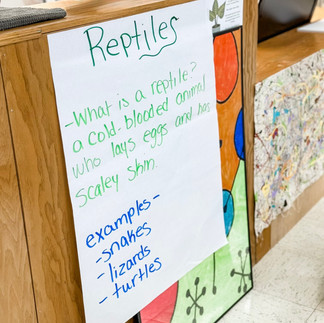 Reptiles
-What is a reptile?
a cold-blooded animal
who lays eggs and has
scaley skin.
examples-
-snakes
-lizards
-turtles